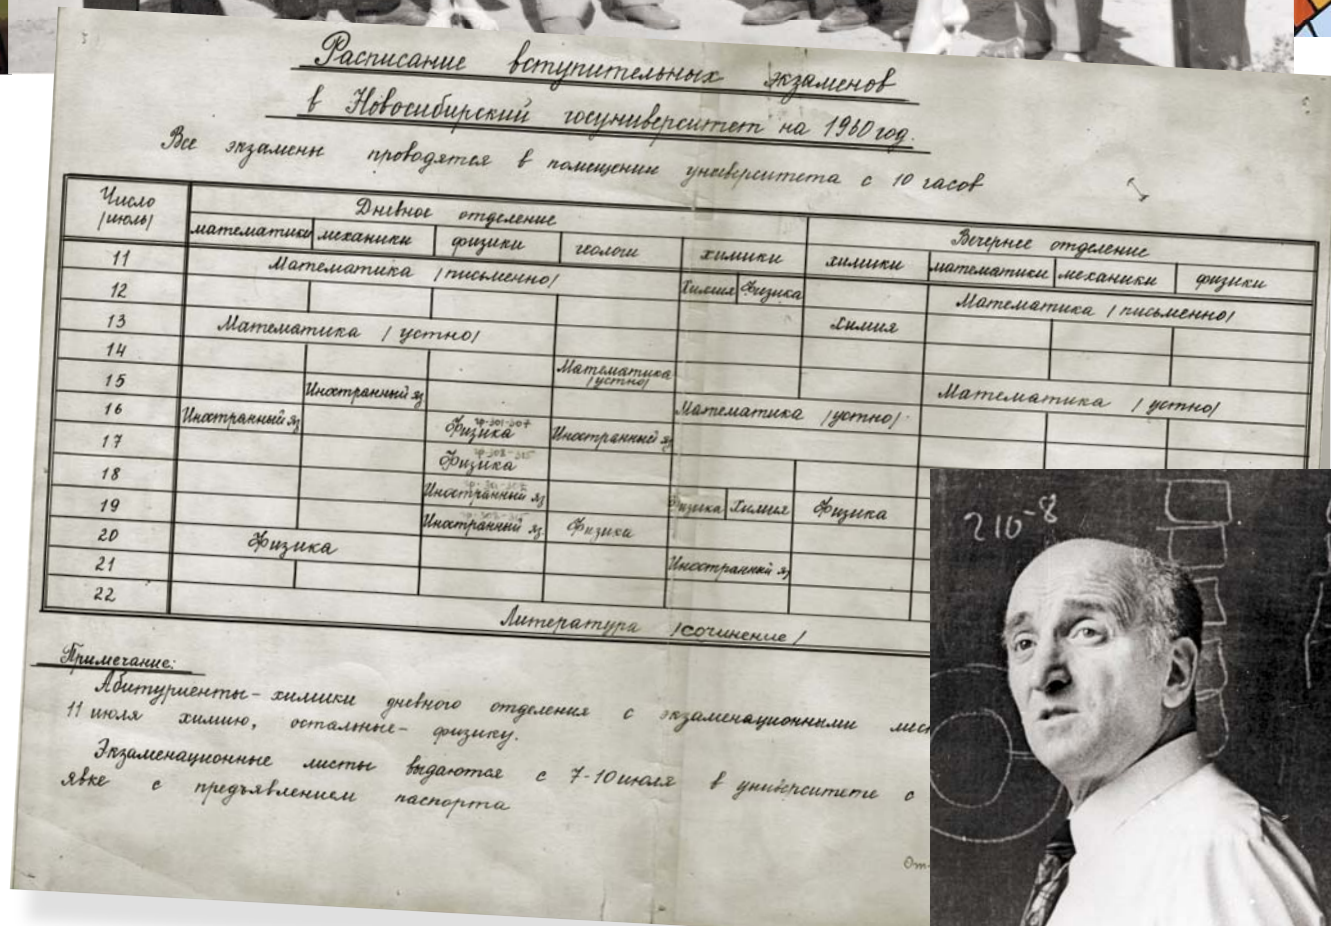 Расписание вступительных экзаменов
в Новосибирский госуниверситет на 1960 год.
Все экзамены проводятся в помещении университета с 10 часов
Число /июль/ Дневное отделение Вечернее отделение
математики механики физики геологи химики химики математики механики физики
11 Математика /письменно/ Химия Физика
12 Математика /письменно/
13 Математика /устно/ Химия
14
15 Иностранный яз. Математика /устно/ Математика /устно/
16 Иностранный яз. Физика Иностранный яз. Математика /устно/
17 Физика
18 Иностранный яз.
19 Иностранный яз. Физика Физика Химия Физика
20 Физика
21 Иностранный яз.
22 Литература /сочинение/
Примечание:
Абитуриенты - химики дневного отделения с экзаменационными
11 июля химию, остальные - физику.
Экзаменационные листы выдаются с 7-10 июля в университете с
явке с предъявлением паспорта
2 10⁻⁸